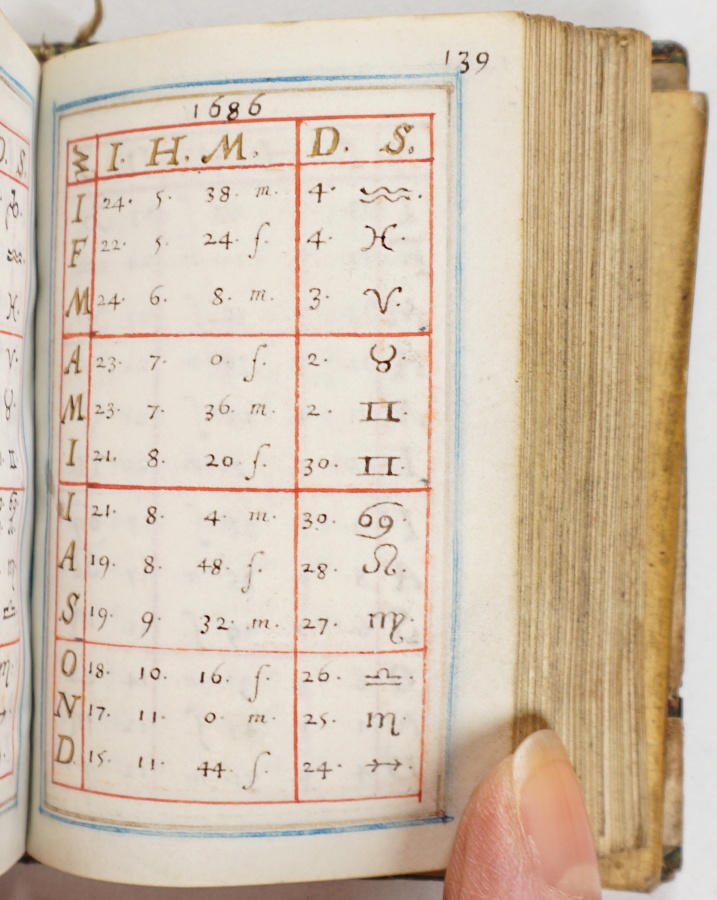 139
1686
M I. H. M. D. S.
I 24. 5. 38. m. 4. ♒.
F 22. 5. 24. ſ. 4. ♓.
M 24. 6. 8. m. 3. ♈.
A 23. 7. 0. ſ. 2. ♉.
M 23. 7. 36. m. 2. ♊.
I 21. 8. 20. ſ. 30. ♊.
I 21. 8. 4. m. 30. ♋.
A 19. 8. 48. ſ. 28. ♌.
S 19. 9. 32. m. 27. ♍.
O 18. 10. 16. ſ. 26. ♎.
N 17. 11. 0. m. 25. ♏.
D. 15. 11. 44. ſ. 24. ♐.